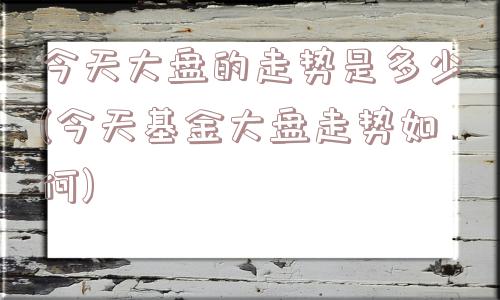 今天大盘的走势是多少
(今天基金大盘走势如
何)